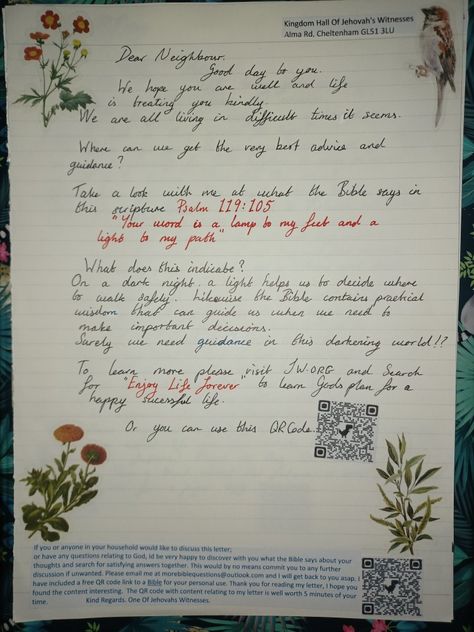 Kingdom Hall Of Jehovah's Witnesses
Alma Rd, Cheltenham GL51 3LU
Dear Neighbour.
Good day to you.
We hope you are well and life
is treating you kindly.
We are all living in difficult times it seems.
Where can we get the very best advice and
guidance?
Take a look with me at what the Bible says in
this scripture Psalm 119:105
"Your word is a lamp to my feet and a
light to my path"
What does this indicate?
On a dark night a light helps us to decide where
to walk safely. Likewise the Bible contains practical
wisdom that can guide us when we need to
make important decisions.
Surely we need guidance in this darkening world!?
To learn more please visit JW.ORG and Search
for "Enjoy Life forever" to learn Gods plan for a
happy sucessful life.
Or you can use this QR Code.
If you or anyone in your household would like to discuss this letter;
or have any questions relating to God, id be very happy to discover with you what the Bible says about your
thoughts and search for satisfying answers together. This would by no means commit you to any further
discussion if unwanted. Please email me at morebiblequestions@outlook.com and I will get back to you asap. I
have included a free QR code link to a Bible for your personal use. Thank you for reading my letter, I hope you
found the content interesting. The QR code with content relating to my letter is well worth 5 minutes of your
time. Kind Regards. One Of Jehovahs Witnesses.